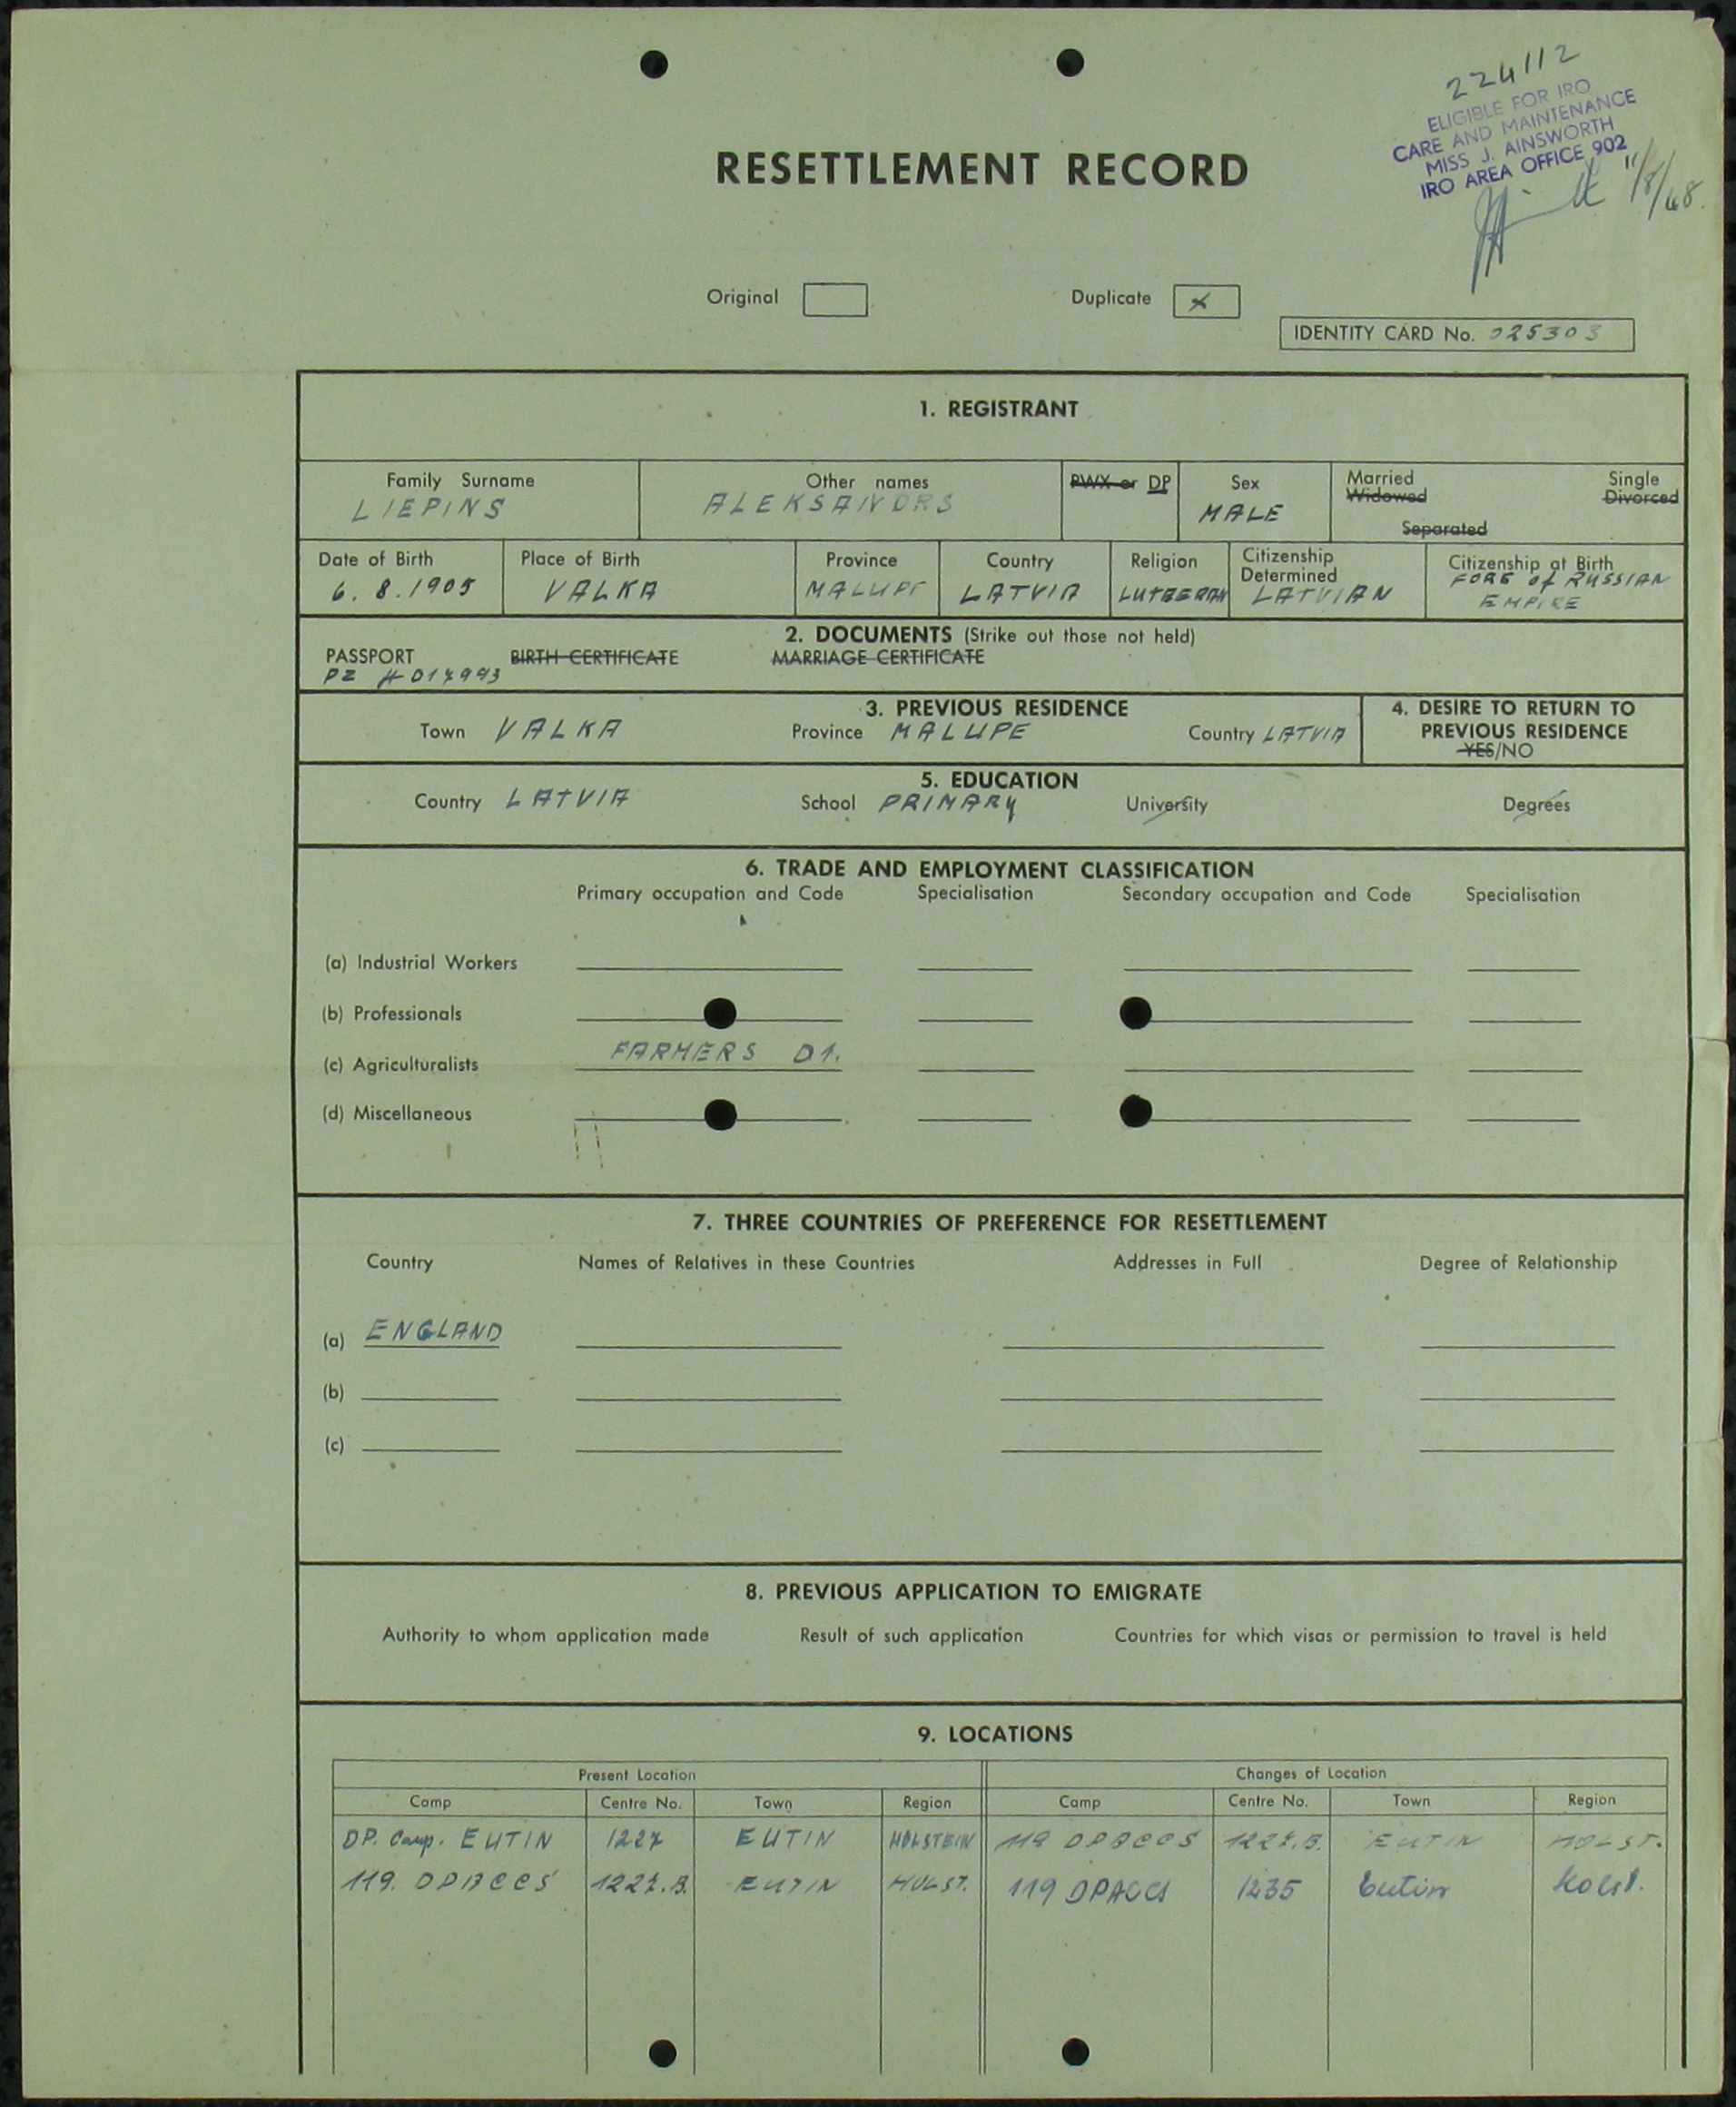 224112
ELIGIBLE FOR IRO
CARE AND MAINTENANCE
MISS J. AINSWORTH
IRO AREA OFFICE 902
11/8/48.
RESETTLEMENT RECORD
Original Duplicate x
IDENTITY CARD No. 025303
1. REGISTRANT
Family Surname Other names PWX or DP Sex Married Single
LIEPINS ALEKSANDRS MALE Widowed Divorced
Separated
Date of Birth Place of Birth Province Country Religion Citizenship Determined Citizenship at Birth
6. 8. 1905 VALKA MALUPE LATVIA LUTHERAN LATVIAN FORG of RUSSIAN
EMPIRE
2. DOCUMENTS (Strike out those not held)
PASSPORT BIRTH CERTIFICATE MARRIAGE CERTIFICATE
PZ # 017993
3. PREVIOUS RESIDENCE
Town VALKA Province MALUPE Country LATVIA
4. DESIRE TO RETURN TO
PREVIOUS RESIDENCE
YES/NO
5. EDUCATION
Country LATVIA School PRIMARY University Degrees
6. TRADE AND EMPLOYMENT CLASSIFICATION
Primary occupation and Code Specialisation Secondary occupation and Code Specialisation
(a) Industrial Workers
(b) Professionals
(c) Agriculturalists FARMERS D1.
(d) Miscellaneous
7. THREE COUNTRIES OF PREFERENCE FOR RESETTLEMENT
Country Names of Relatives in these Countries Addresses in Full Degree of Relationship
(a) ENGLAND
(b)
(c)
8. PREVIOUS APPLICATION TO EMIGRATE
Authority to whom application made Result of such application Countries for which visas or permission to travel is held
9. LOCATIONS
Present Location Changes of Location
Camp Centre No. Town Region Camp Centre No. Town Region
DP. Camp. EUTIN 1227 EUTIN HOLSTEIN 119 DPACCS 1227.B. EUTIN HOLST.
119. DPACCS 1227.B. EUTIN HOLST. 119 DPACCS 1235 Eutin Holst.